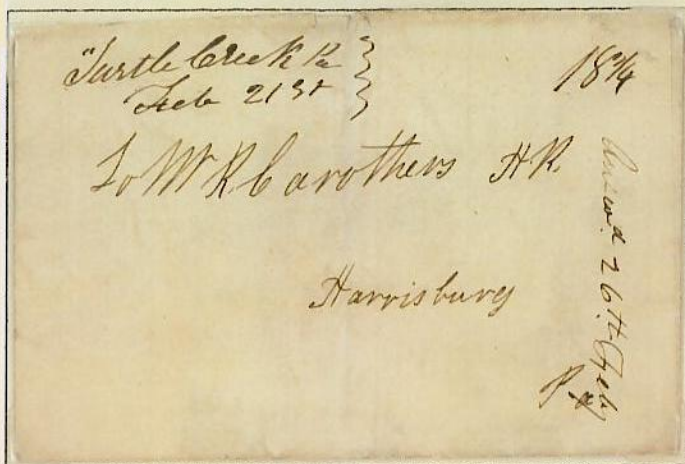 Turtle Creek Pa
Feb 21st
18 3/4
To Mr R Carothers H R.
Harrisburg
Pa
Answd 26th Feby